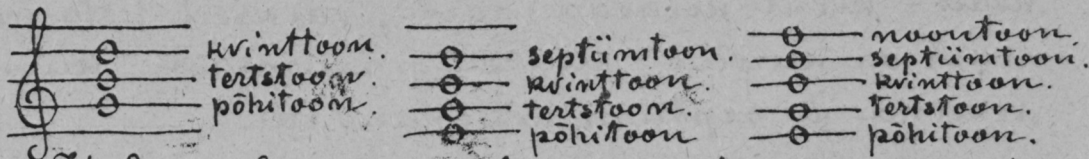 kvinttoon.
tertstoon.
põhitoon.
septiimtoon.
kvinttoon.
tertstoon.
põhitoon
noontoon.
septiimtoon.
kvinttoon.
tertstoon.
põhitoon.